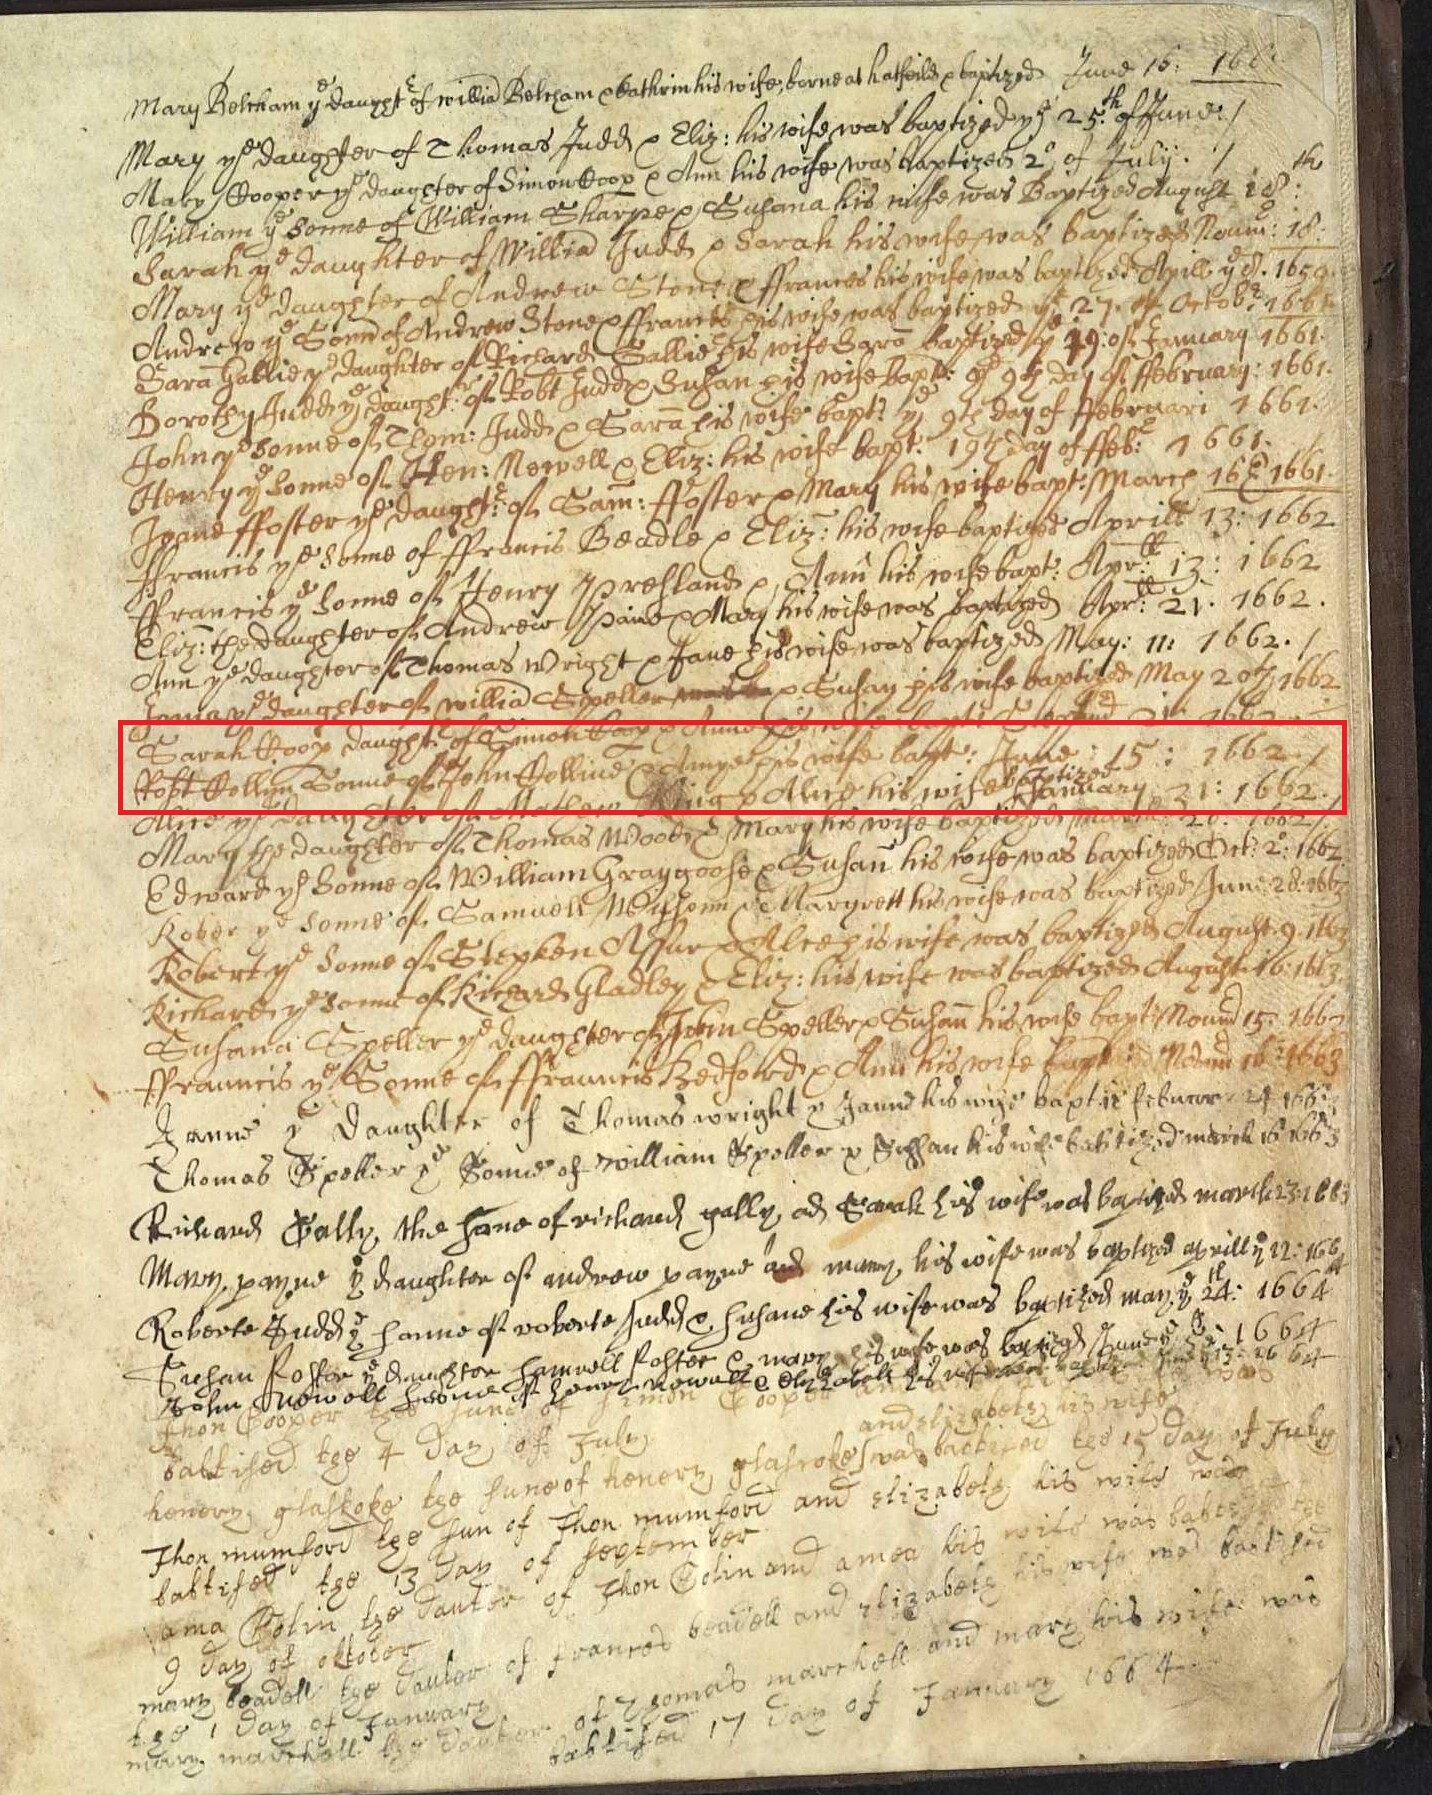 Mary Beltcham yᵉ daught: of Williā Beltcham & Kathrin his wife, borne at hatfeild & baptized June 16: 166
Mary yᵉ daughter of Thomas Judd & Eliz: his wife was baptized yᵉ 25th of June: /
Mary Cooper yᵉ daughter of Simon Coop & Ann his wife was baptized 2° of July. /
William yᵉ Sonne of William Sharpe & Susana his wife was Baptized August 18th:
Sarah yᵉ daughter of Williā Judd & Sarah his wife was baptized Novm: 18:
Mary yᵉ daughter of Andrew Stone & ffrances his wife was baptized Aprill yᵉ 8. 1659.
Andrew yᵉ Sonn of Andrew Stone & ffrances his wife was baptized yᵉ 27. of Octobᵉʳ 1661
Sara Gallie yᵉ daughter of Richard Gallie & his wife Sara baptized yᵉ 19: of January 1661.
Dorothy Judd yᵉ daught: of Robt Judd & Susan his wife bapt: yᵉ 9th day of ffebruary: 1661.
John yᵉ Sonne of Thom: Judd & Sara his wife bapt: yᵉ 9th day of ffebruari 1661.
Henry yᵉ Sonne of Hen: Newell & Eliz: his wife bapt: 19th day of ffeb: 1661.
Joane ffoster yᵉ daught: of Sam: ffoster & Mary his wife bapt: March 16th 1661.
ffrancis yᵉ Sonne of ffrancis Beadle & Eliz: his wife baptized Aprill 13: 1662
ffrancis yᵉ Sonne of Henry Presland & Ann his wife bapt: Apr: 13: 1662
Eliz: the daughter of Andrew Paine & Mary his wife was baptized Apr: 21. 1662.
Ann yᵉ daughter of Thomas Wright & Jane his wife was baptized May: 11: 1662. /
yᵉ daughter of Williā Speller & Susan his wife baptized May 20th 1662
Sarah Coop daught: of Simon Coop & Anne his wife bapt: 21: 1662
Robt Collin Sonne of John Colline & Amye his wife bapt: June: 15: 1662. /
Alice yᵉ daughter of Mathew King & Alice his wife baptized January 21: 1662. /
Mary the daughter of Thomas Wood & Mary his wife baptized March 1662 /
Edward yᵉ Sonne of William Graygoose & Susan his wife was baptized Oct: 2°: 1662.
Rober yᵉ Sonne of Samuell & Margrett his wife was baptized June: 28: 1663
Robert yᵉ Sonne of Stephen & Alce his wife was baptized August. 9. 1663
Richard yᵉ Sonne of Richard Gladley & Eliz: his wife was baptized August. 16: 1663.
Susana Speller yᵉ daughter of John Speller & Susan his wife bapt: Novmᵇ 15: 1663
ffrauncis yᵉ Sonne of ffrauncis Bedford & Ann his wife bapt: Novm 1663
Janne yᵉ Daughter of Thomas wright & Janne his wife baptis februar 24 166
Thomas Speller yᵉ Sonne of William Speller & Sussan his wife babtized march 16 1663
Richard Gally the sone of richard gally ad Sarah his wife was baptized march 23: 1663
Mary payne yᵉ daughter of andrew payne and mary his wife was baptized aprill yᵉ 12: 166
Roberte Judd yᵉ sonne of roberte Judd & susane his wife was baptized may yᵉ 24th: 1664
Susan Foster yᵉ daughter samuell foster & mary his wife was baptized June yᵉ 1664
John Newell sonne of henry newell & Elizabeth his wife was 1664
Jhon Cooper the sune of Simon Cooper was
babtised the 4 Day of July
and elizabeth his wife
henery glaskoke the sune of henery glascoke was babtised the 15 Day of July
Jhon mumford the sun of Jhon mumford and elizabeth his wife was
babtised the 13 Day of September
ama Colin the Dauter of Jhon Colin and amea his wife was babtised the
9 Day of october
mary beadell the Dauter of frances beadell and elizabeth his wife was babtised
the 1 Day of January
mary marshell the Dauter of Thomas marshell and mary his wife was
babtised 17 Day of January 1664